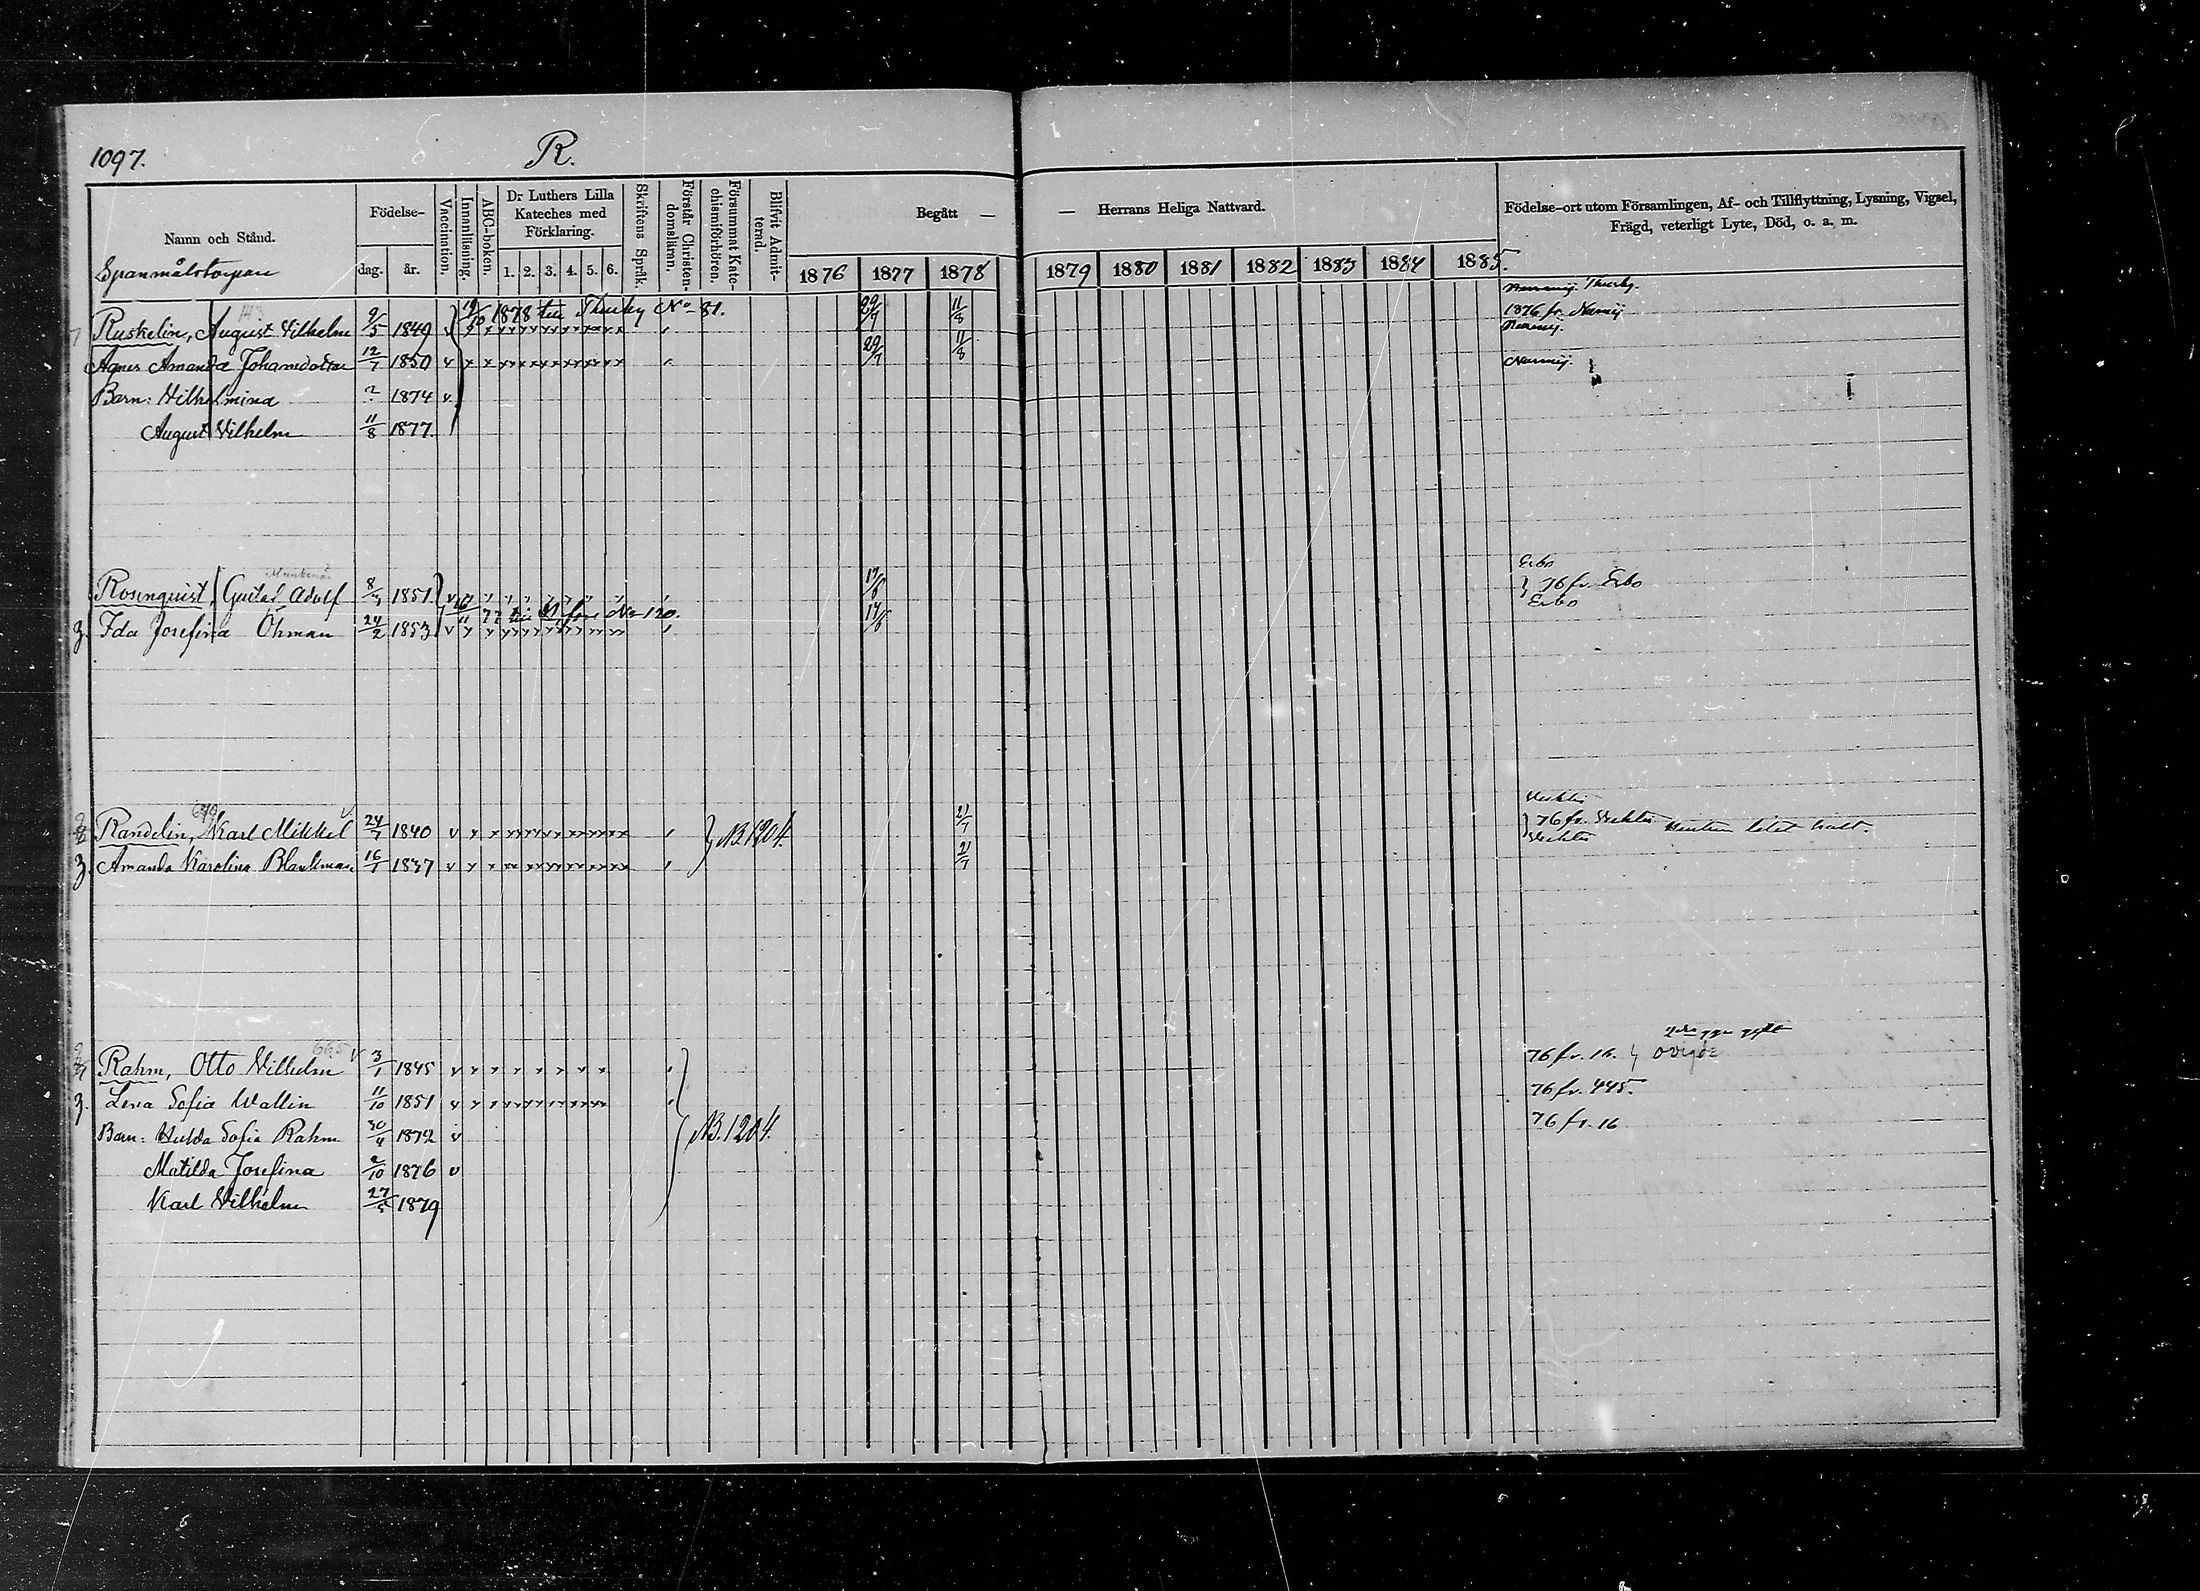 1097.
R.
Namn och Stånd.
Födelse-
dag.
år.
Vaccination.
Innanläsning.
ABC-boken.
Dr Luthers Lilla
Kateches med
Förklaring.
1. 2. 3. 4. 5. 6.
Skriftens Språk.
Förstår Christen-
domsläran.
Försummat Kate-
chismiförhören.
Blifvit Admit-
terad.
Begått —
— Herrans Heliga Nattvard.
1876 1877 1878 1879 1880 1881 1882 1883 1884 1885.
Födelse-ort utom Församlingen, Af- och Tillflyttning, Lysning, Vigsel,
Frägd, veterligt Lyte, Död, o. a. m.
Spanmålstorpare
19/10 1878 till Thusby No 81. 29/7 11/8
Ruskelin, August Vilhelm 9/5 1849 v 1876 fr. Nummij
Agnes Amanda Johansdotter 12/7 1850 v 29/7 11/8 Nummij.
Barn: Vilhelmina 1874 v.
August Vilhelm 11/8 1877.
Rosenquist, Gustaf Adolf 8/ 1851 v 17/6 76 fr. Esbo
Esbo
Ida Josefina Öhman 24/2 1853 v 77 till No 120. 17/6
3.
Randelin, Karl Mikkel 24/7 1840 v NB. 1204. 21/7 76 fr. Vichtis
3. Amanda Karolina 16/1 1837 v 21/7 Vichtis
Rahm, Otto Vilhelm 3/1 1845 v 76 fr. 16.
3. Lena Sofia Wallin 11/10 1851 v 76 fr. 445.
Barn: Hulda Sofia Rahm 30/4 1872 v NB. 1204. 76 fr. 16
Matilda Josefina 2/10 1876 v
Karl Vilhelm 27/5 1879